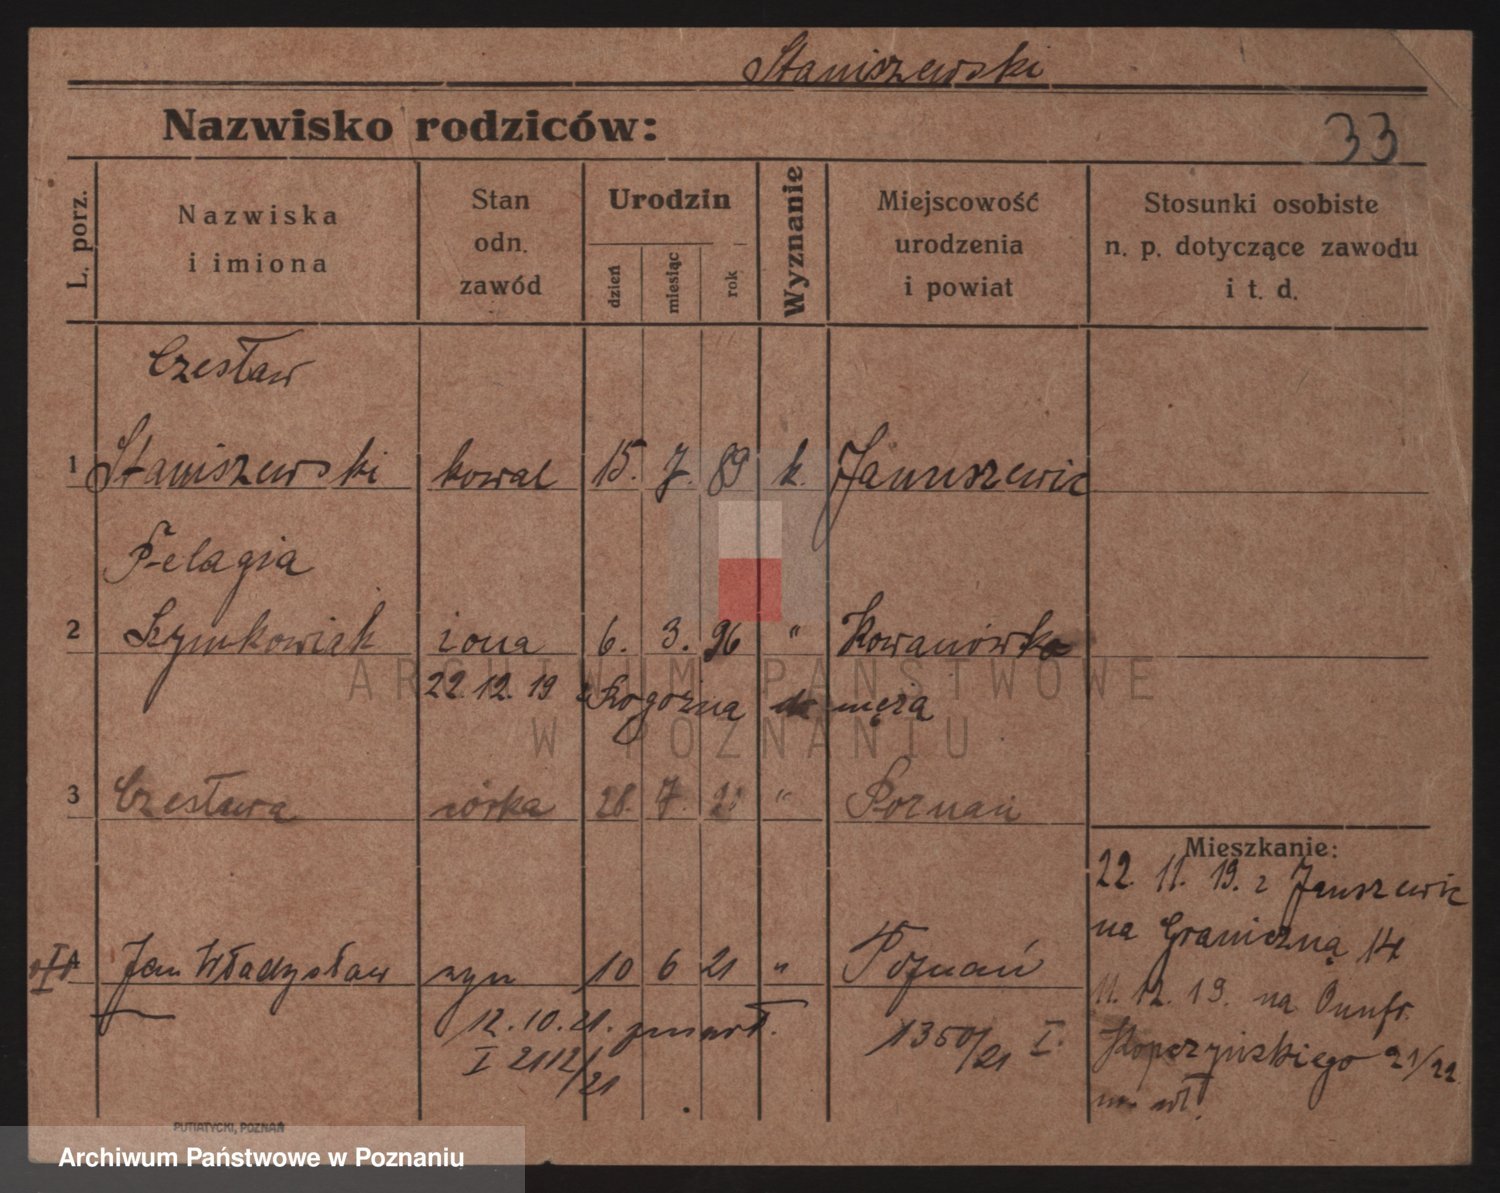 Staniszewski
Nazwisko rodziców: 33
L. porz.
Nazwiska
i imiona
Stan
odn.
zawód
Urodzin
dzień
miesiąc
rok
Wyznanie
Miejscowość
urodzenia
i powiat
Stosunki osobiste
n. p. dotyczące zawodu
i t. d.
Czesław
1 Staniszewski kowal 15. 7. 89 k. Januszewic
Pelagia
2 Szymkowiak żona 6. 3. 96 " Kowanówko
22. 12. 19 z Rogoźna do męża
3 Czesława córka 28. 7. " Poznań
Mieszkanie:
22. 11. 19. z Januszewic
na Graniczną 14
4 Jan Władysław syn 10 6 21 " Poznań
11. 12. 19. na Onufr.
12. 10. 21. zmarł. 1350/21 I.
Kopczyńskiego 21/22
I 2112/21
PUTIATYCKI, POZNAŃ
ARCHIWUM PAŃSTWOWE
W POZNANIU
Archiwum Państwowe w Poznaniu